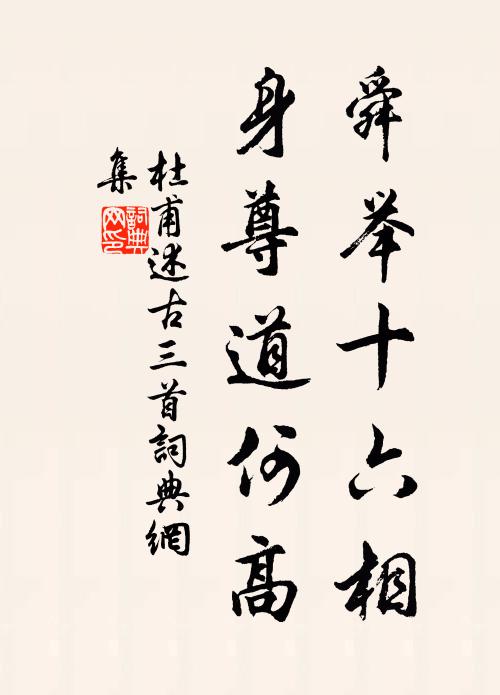 舜举十六相
身尊道何高
杜甫述古三首詞典網
集
詞典
网印